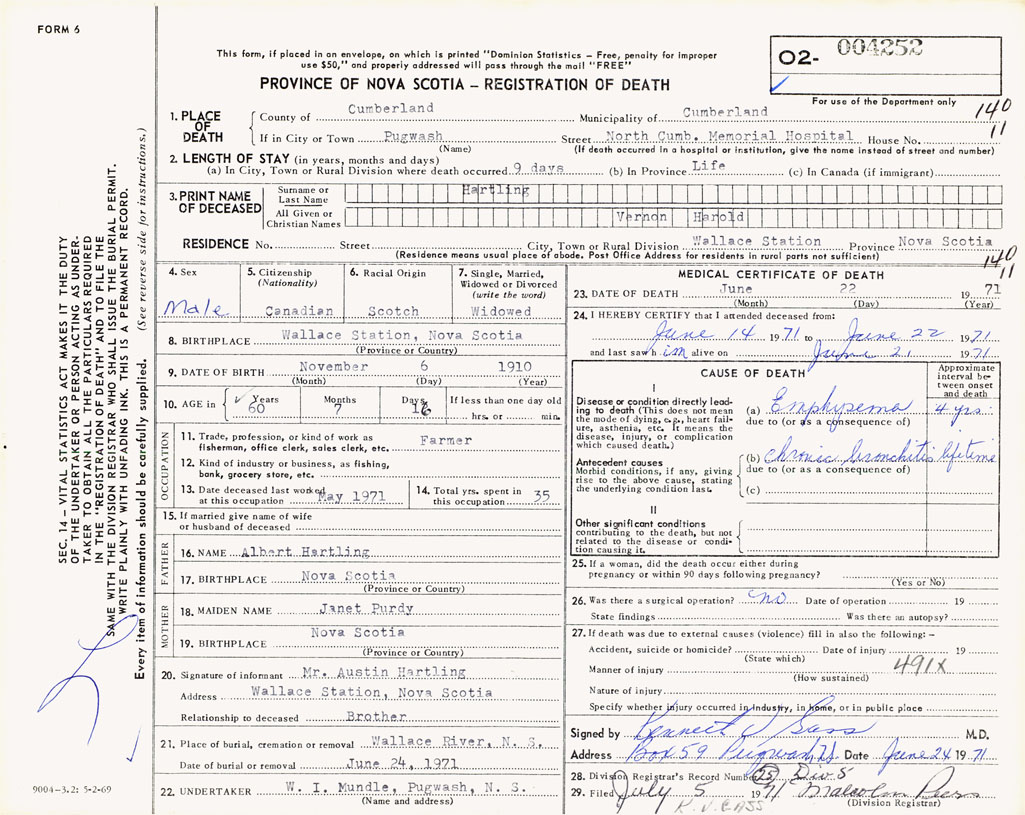 FORM 6
SEC. 14 – VITAL STATISTICS ACT MAKES IT THE DUTY
OF THE UNDERTAKER OR PERSON ACTING AS UNDER-
TAKER TO OBTAIN ALL THE PARTICULARS REQUIRED
IN THE "REGISTRATION OF DEATH" AND TO FILE THE
SAME WITH THE DIVISION REGISTRAR WHO SHALL ISSUE THE BURIAL PERMIT.
WRITE PLAINLY WITH UNFADING INK. THIS IS A PERMANENT RECORD.
Every item of information should be carefully supplied. (See reverse side for instructions.)
9004-3.2: 5-2-69
This form, if placed in an envelope, on which is printed "Dominion Statistics – Free, penalty for improper
use $50," and properly addressed will pass through the mail "FREE"
O2- 004252
PROVINCE OF NOVA SCOTIA – REGISTRATION OF DEATH
For use of the Department only
140
11
1. PLACE OF DEATH County of Cumberland Municipality of Cumberland
If in City or Town Pugwash Street North Cumb. Memorial Hospital House No.
(Name) (If death occurred in a hospital or institution, give the name instead of street and number)
2. LENGTH OF STAY (in years, months and days)
(a) In City, Town or Rural Division where death occurred 9 days (b) In Province Life (c) In Canada (if immigrant)
3. PRINT NAME OF DECEASED Surname or Last Name Hartling
All Given or Christian Names Vernon Harold
RESIDENCE No. Street City, Town or Rural Division Wallace Station Province Nova Scotia
(Residence means usual place of abode. Post Office Address for residents in rural parts not sufficient)
140
11
4. Sex 5. Citizenship (Nationality) 6. Racial Origin 7. Single, Married, Widowed or Divorced (write the word)
Male Canadian Scotch Widowed
8. BIRTHPLACE Wallace Station, Nova Scotia
(Province or Country)
9. DATE OF BIRTH November 6 1910
(Month) (Day) (Year)
10. AGE in Years Months Days If less than one day old
60 7 16 hrs. or min.
OCCUPATION
11. Trade, profession, or kind of work as
fisherman, office clerk, sales clerk, etc. Farmer
12. Kind of industry or business, as fishing,
bank, grocery store, etc.
13. Date deceased last worked
at this occupation May 1971
14. Total yrs. spent in
this occupation 35
15. If married give name of wife
or husband of deceased
FATHER
16. NAME Albert Hartling
17. BIRTHPLACE Nova Scotia
(Province or Country)
MOTHER
18. MAIDEN NAME Janet Purdy
19. BIRTHPLACE Nova Scotia
(Province or Country)
20. Signature of informant Mr. Austin Hartling
Address Wallace Station, Nova Scotia
Relationship to deceased Brother
21. Place of burial, cremation or removal Wallace River, N. S.
Date of burial or removal June 24, 1971
22. UNDERTAKER W. I. Mundle, Pugwash, N. S.
(Name and address)
MEDICAL CERTIFICATE OF DEATH
23. DATE OF DEATH June 22 1971
(Month) (Day) (Year)
24. I HEREBY CERTIFY that I attended deceased from:
June 14 1971 to June 22 1971
and last saw him alive on June 21 1971
CAUSE OF DEATH
Approximate interval between onset and death
I
Disease or condition directly lead-
ing to death (This does not mean
the mode of dying, e.g., heart fail-
ure, asthenia, etc. It means the
disease, injury, or complication
which caused death.)
(a) Emphysema 4 yrs.
due to (or as a consequence of)
Antecedent causes
Morbid conditions, if any, giving
rise to the above cause, stating
the underlying condition last.
(b) chronic bronchitis lifetime
due to (or as a consequence of)
(c)
II
Other significant conditions
contributing to the death, but not
related to the disease or condi-
tion causing it.
25. If a woman, did the death occur either during
pregnancy or within 90 days following pregnancy?
(Yes or No)
26. Was there a surgical operation? no Date of operation 19
State findings Was there an autopsy?
27. If death was due to external causes (violence) fill in also the following: –
Accident, suicide or homicide? Date of injury 19
(State which)
491X
Manner of injury
(How sustained)
Nature of injury
Specify whether injury occurred in industry, in home, or in public place
Signed by Kenneth J Cass M.D.
Address Box 59 Pugwash, NS Date June 24 1971
28. Division Registrar's Record Number 25 Div 5
29. Filed July 5 1971 Malcolm Peers
(Division Registrar)
K. J. CASS